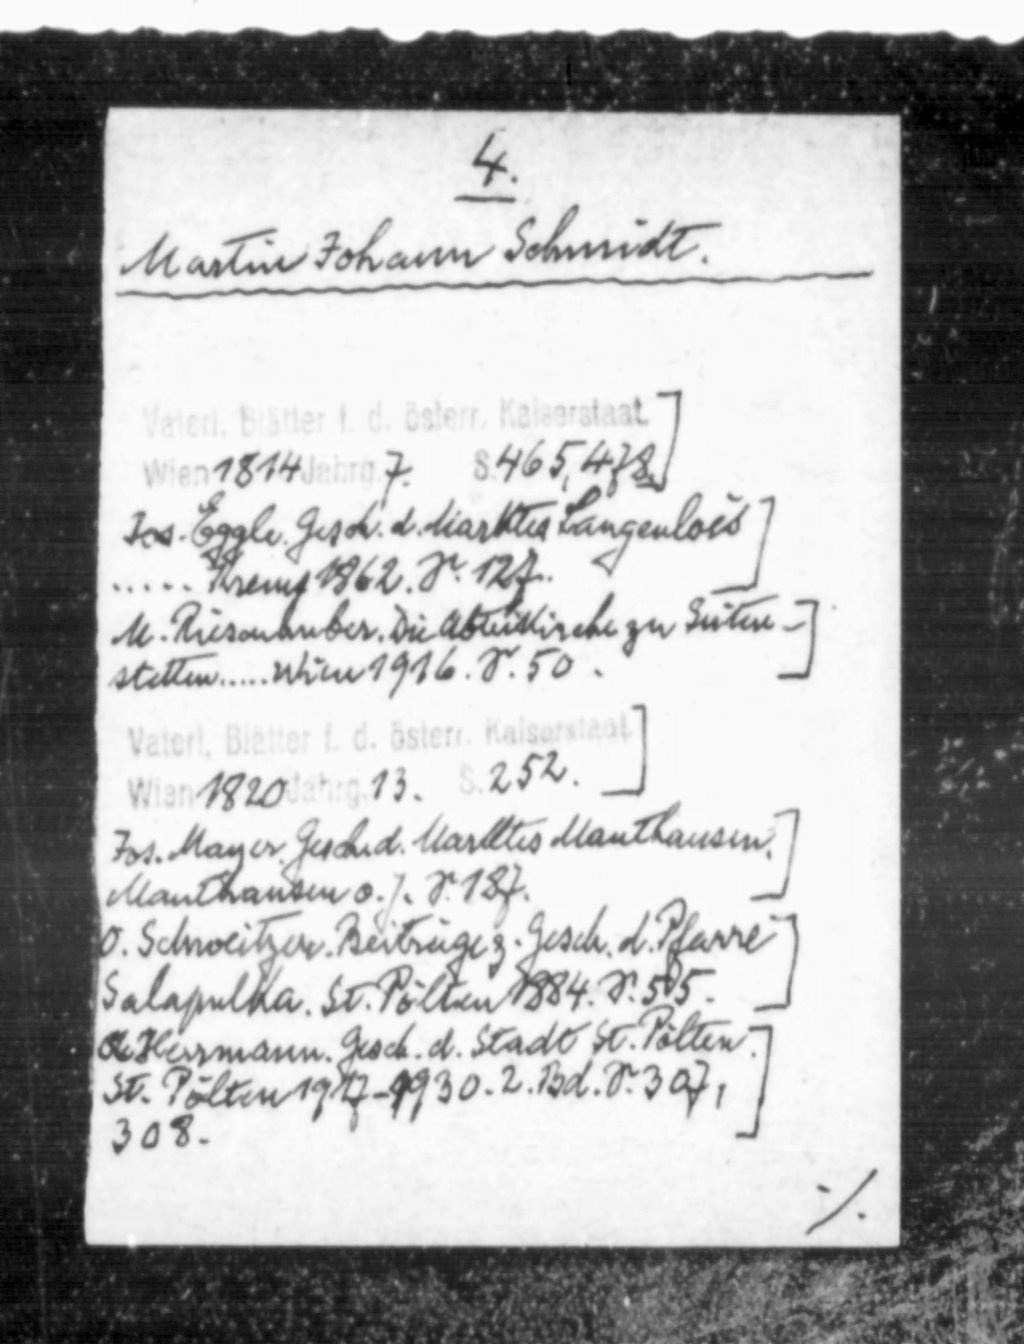 4.
Martin Johann Schmidt.
Vaterl. Blätter f. d. österr. Kaiserstaat.
Wien 1814 Jahrg. 7. S. 465, 478.
Jos. Eggle. Gesch. d. Marktes Langenlois
..... Krems 1862. S. 127.
M. Riesenhuber. Die Abteikirche zu Seiten-
stetten..... Wien 1916. S. 50.
Vaterl. Blätter f. d. österr. Kaiserstaat.
Wien 1820 Jahrg. 13. S. 252.
Jos. Mayer. Gesch. d. Marktes Mauthausen.
Mauthausen o. J. S. 187.
O. Schweitzer. Beiträge z. Gesch. d. Pfarre
Salapulka. St. Pölten 1884. S. 55.
Herrmann. Gesch. d. Stadt St. Pölten.
St. Pölten 1917-1930. 2. Bd. S. 307,
308.
./.